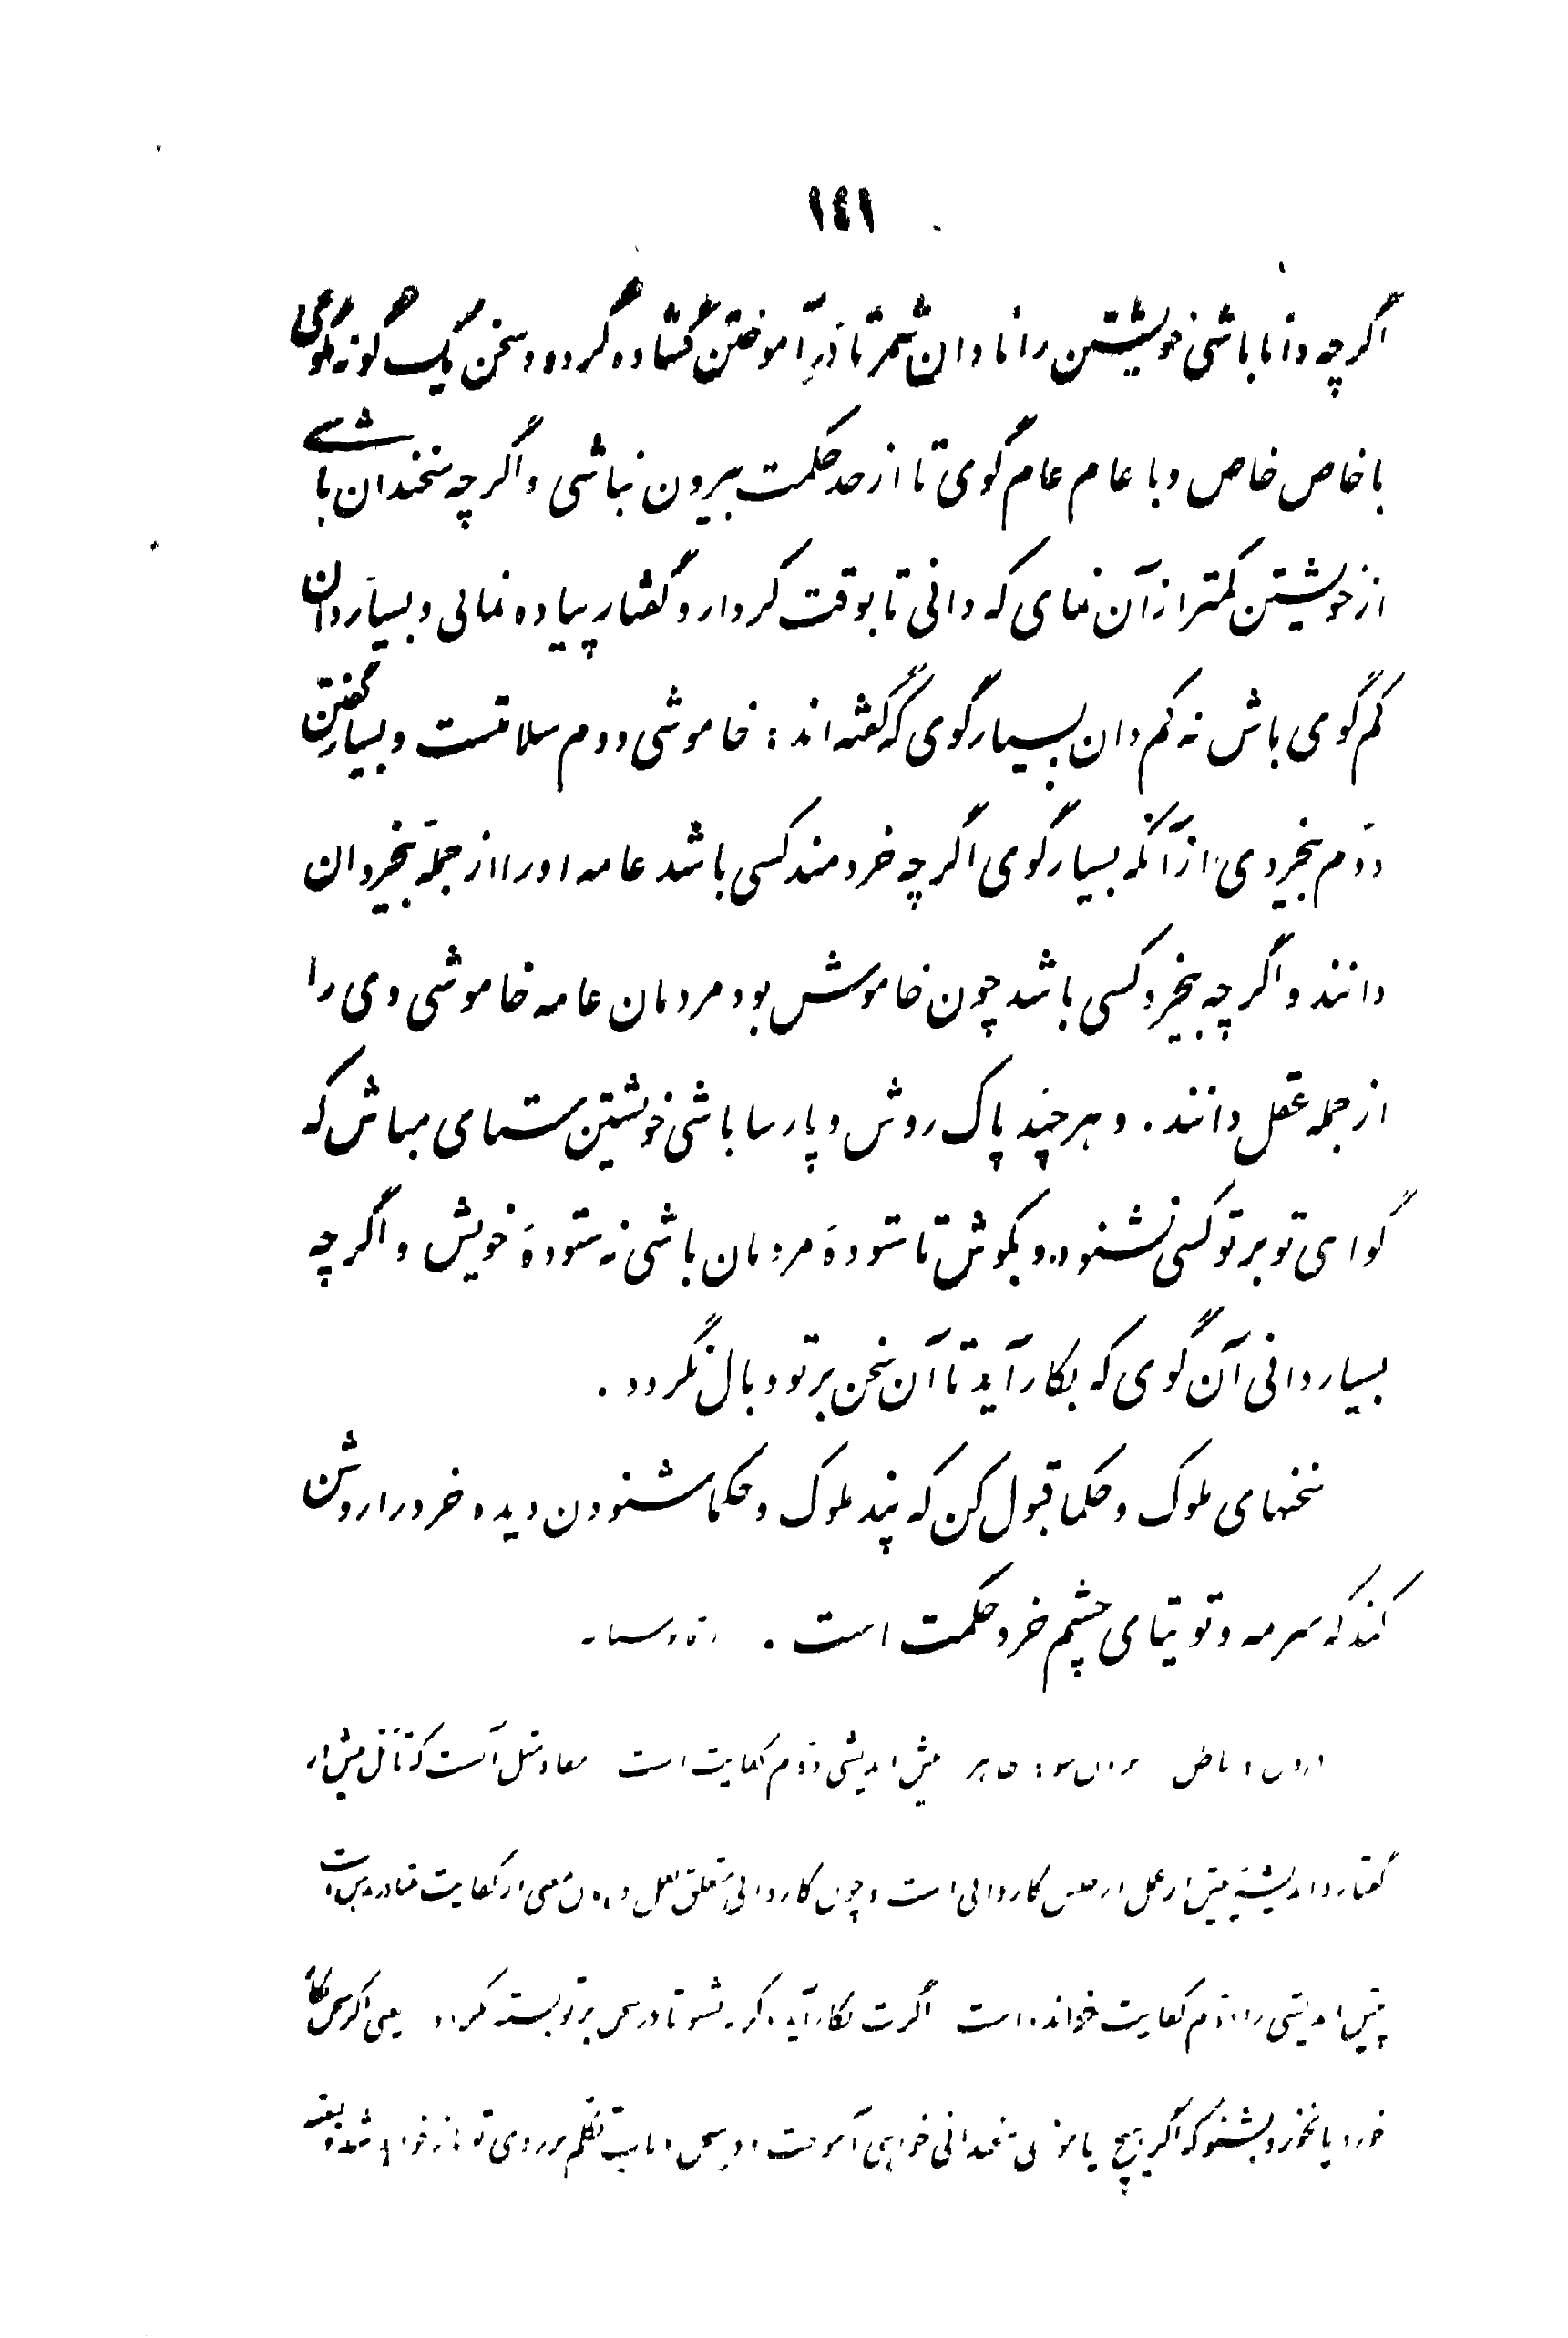 ١٤١
اگرچه دانا باشی خویشتن را نادان شمر تا دَرِ آموختن گشاده گردد و سخن یک گونه مگوی
با خاص خاص و با عام عام گوی تا از حد حکمت بیرون نباشی و اگرچه سخندان باشی
از خویشتن کمتر از آن نمای که دانی تا بوقت کردار و گفتار پیاده نمانی و بسیار دان
کم گوی باش نه کم دان بسیار گوی که گفته‌اند: خاموشی دوم سلامتست و بسیار گفتن
دوّم بیخردی از آنکه بسیار گوی اگرچه خردمند کسی باشد عامه او را از جملهٔ بیخردان
دانند و اگرچه بیخرد کسی باشد چون خاموش بود مردمان عامه خاموشی وی را
از جمله عقل دانند. و هر چند پاک روش و پارسا باشی خویشتن ستای مباش که
گواهی تو بر تو کسی نشنود و بکوش تا ستودهٔ مردمان باشی نه ستودهٔ خویش و اگرچه
بسیار دانی آن گوی که بکار آید تا آن سخن بر تو وبال نگردد.
سخنهای ملوک و حکما قبول کن که پند ملوک و حکما شنودن دیده خرد را روشن
کند که سرمه و توتیای چشم خرد حکمت است.
پیش اندیشی دوّم کفایت است
گفتار و اندیشیدن پیش از عمل از جنس کاردانی است و چون کاردانی متعلق بعمل
پیش اندیشی را دوّم کفایت خوانده است اگرت بکار آید و گر نه بشنو تا در سخن بر تو بسته نگردد یعنی اگر سخن بکار
خورد یا نخورد بشنو که اگر هیچ نیاموزی سخندانی خواهی آموخت و در سخن و باب تکلم بر روی تو باز خواهد شد